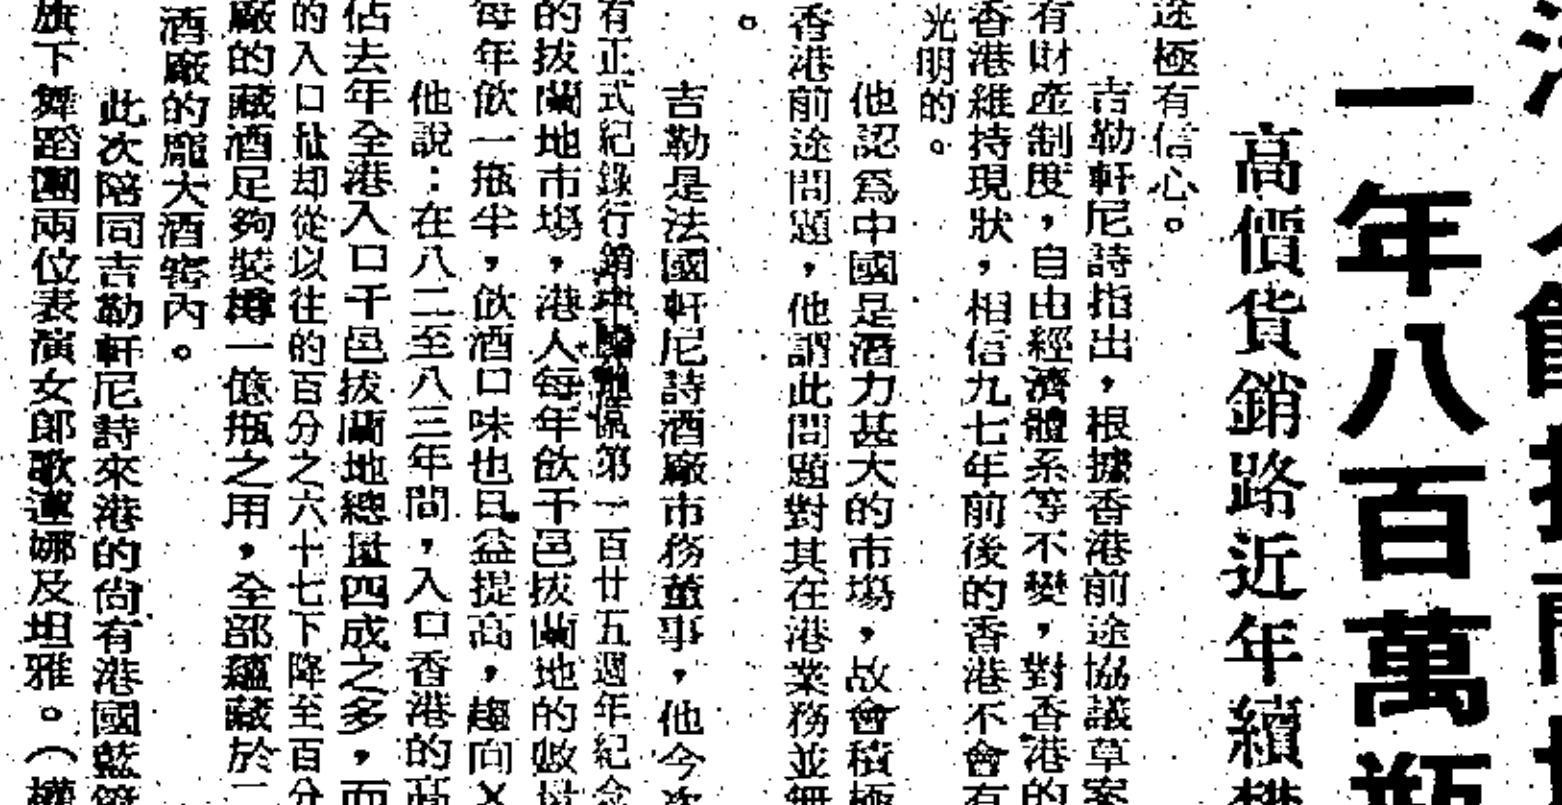 一年八百萬瓶
高價貨銷路近年續
途極有信心。
吉勒軒尼詩指出，根據香港前途協議草案
有財產制度，自由經濟體系等不變，對香港的
香港維持現狀，相信九七年前後的香港不會有
光明的。
他認爲中國是潛力甚大的市場，故會積極
香港前途問題，他謂此問題對其在港業務並無
。
吉勒是法國軒尼詩酒廠市務董事，他今次
有正式紀錄行銷中國地區第一百廿五週年紀念
的拔蘭地市場，港人每年飲干邑拔蘭地的數量
每年飲一瓶半，飲酒口味也日益提高，趨向X
他說：在八二至八三年間，入口香港的高
佔去年全港入口干邑拔蘭地總量四成之多，而
的入口量却從以往的百分之六十七下降至百分
廠的藏酒足夠裝樽一億瓶之用，全部蘊藏於二
酒廠的龐大酒窖內。
此次陪同吉勒軒尼詩來港的尚有港國藍
旗下舞蹈團兩位表演女郎歌蓮娜及坦雅。（權